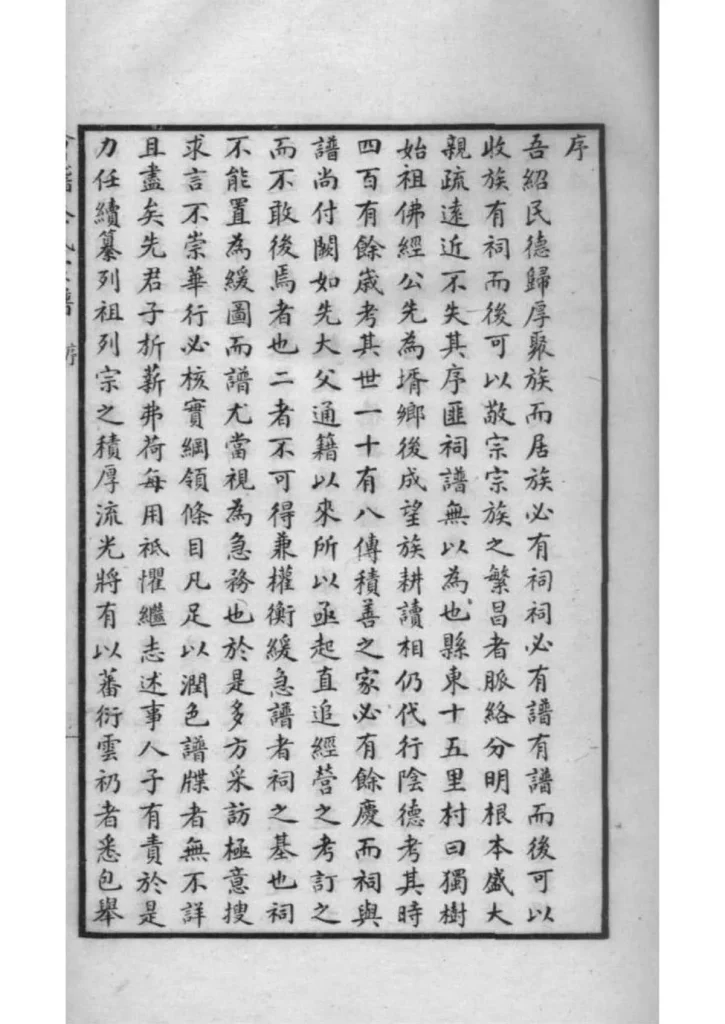 序
吾紹民德歸厚聚族而居族必有祠祠必有譜有譜而後可以
收族有祠而後可以敬宗宗族之繁昌者脈絡分明根本盛大
親疏遠近不失其序匪祠譜無以為也縣東十五里村曰獨樹
始祖佛經公先為壻鄉後成望族耕讀相仍代行陰德考其時
四百有餘歲考其世一十有八傳積善之家必有餘慶而祠與
譜尚付闕如先大父通籍以來所以亟起直追經營之考訂之
而不敢後焉者也二者不可得兼權衡緩急譜者祠之基也祠
不能置為緩圖而譜尤當視為急務也於是多方采訪極意搜
求言不崇華行必核實綱領條目凡足以潤色譜牒者無不詳
且盡矣先君子析薪弗荷每用祗懼繼志述事人子有責於是
力任續纂列祖列宗之積厚流光將有以蕃衍雲礽者悉包舉
譜 序